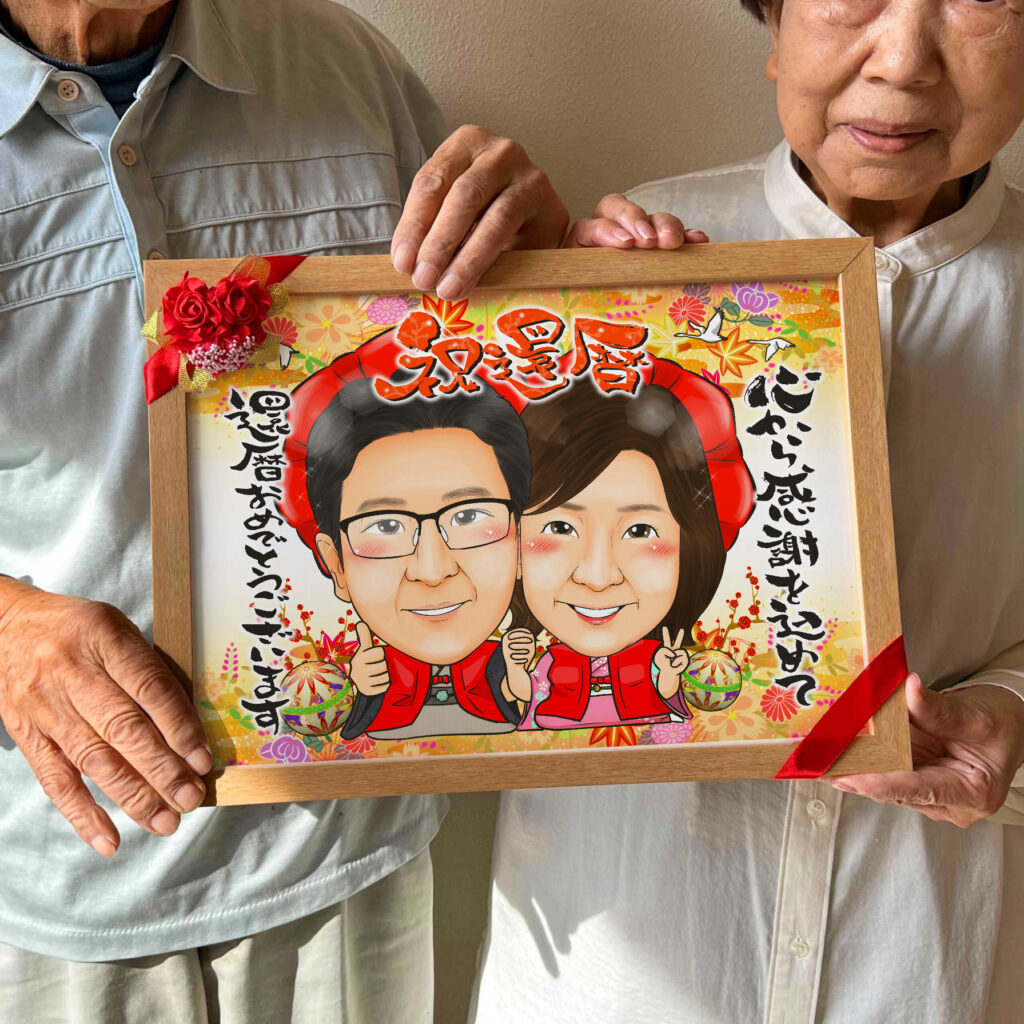 祝還暦
心から感謝を込めて
還暦おめでとうございます